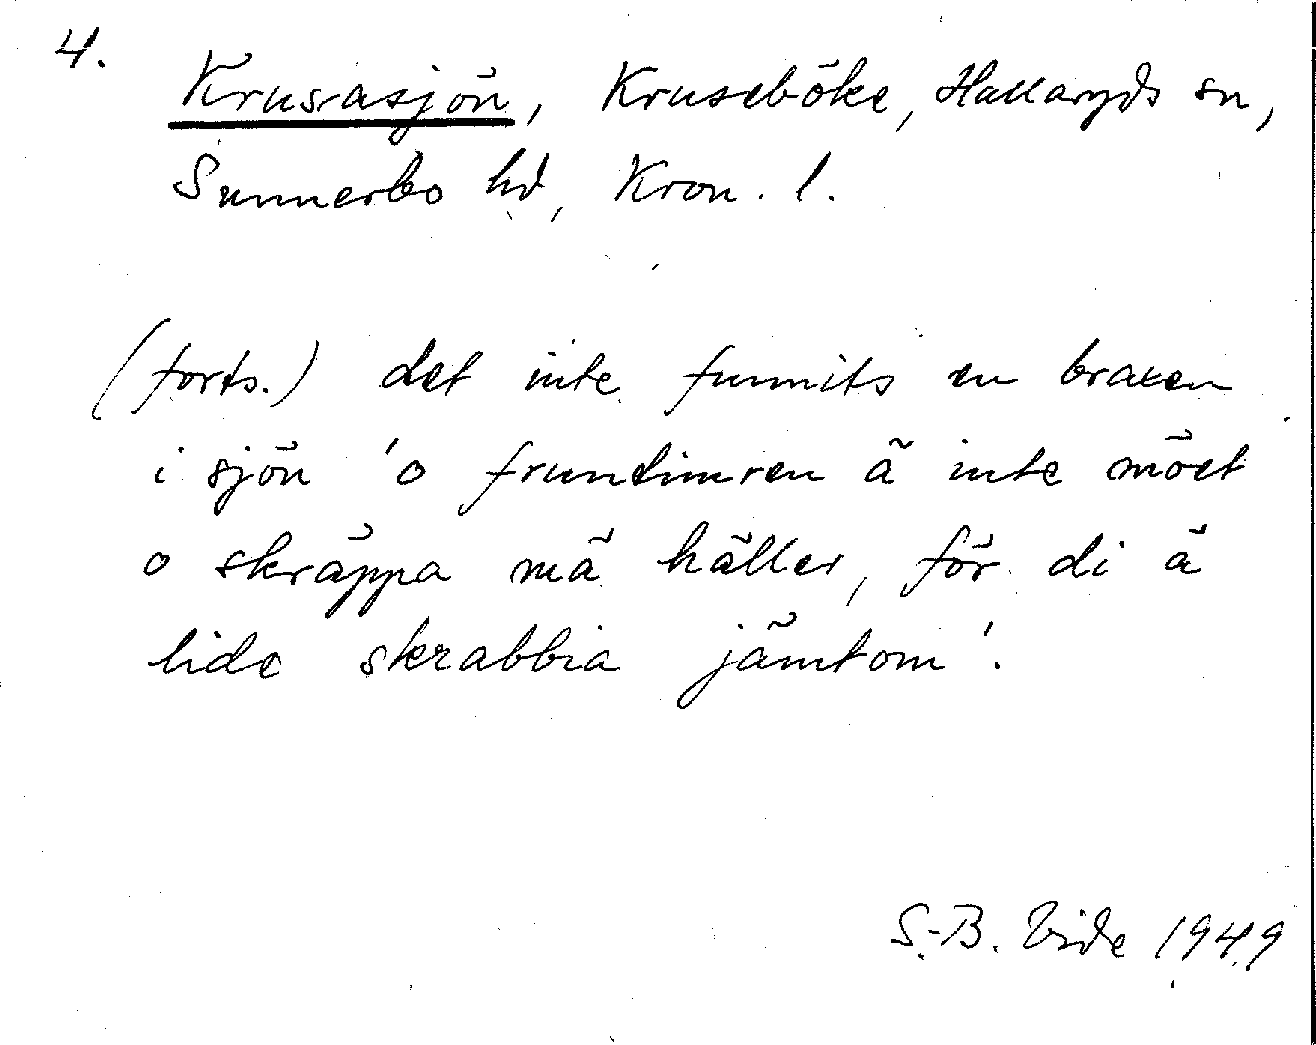 4.
Krusrasjön, Kruseböke, Hallaryds sn,
Sunnerbo hd, Kron. l.
(forts.) det inte funnits en braxen
i sjön 'o fruntimren ä inte möet
o skräppa mä häller, för di ä
lide skrabbia jämtom'.
S.-B. Vide 1949